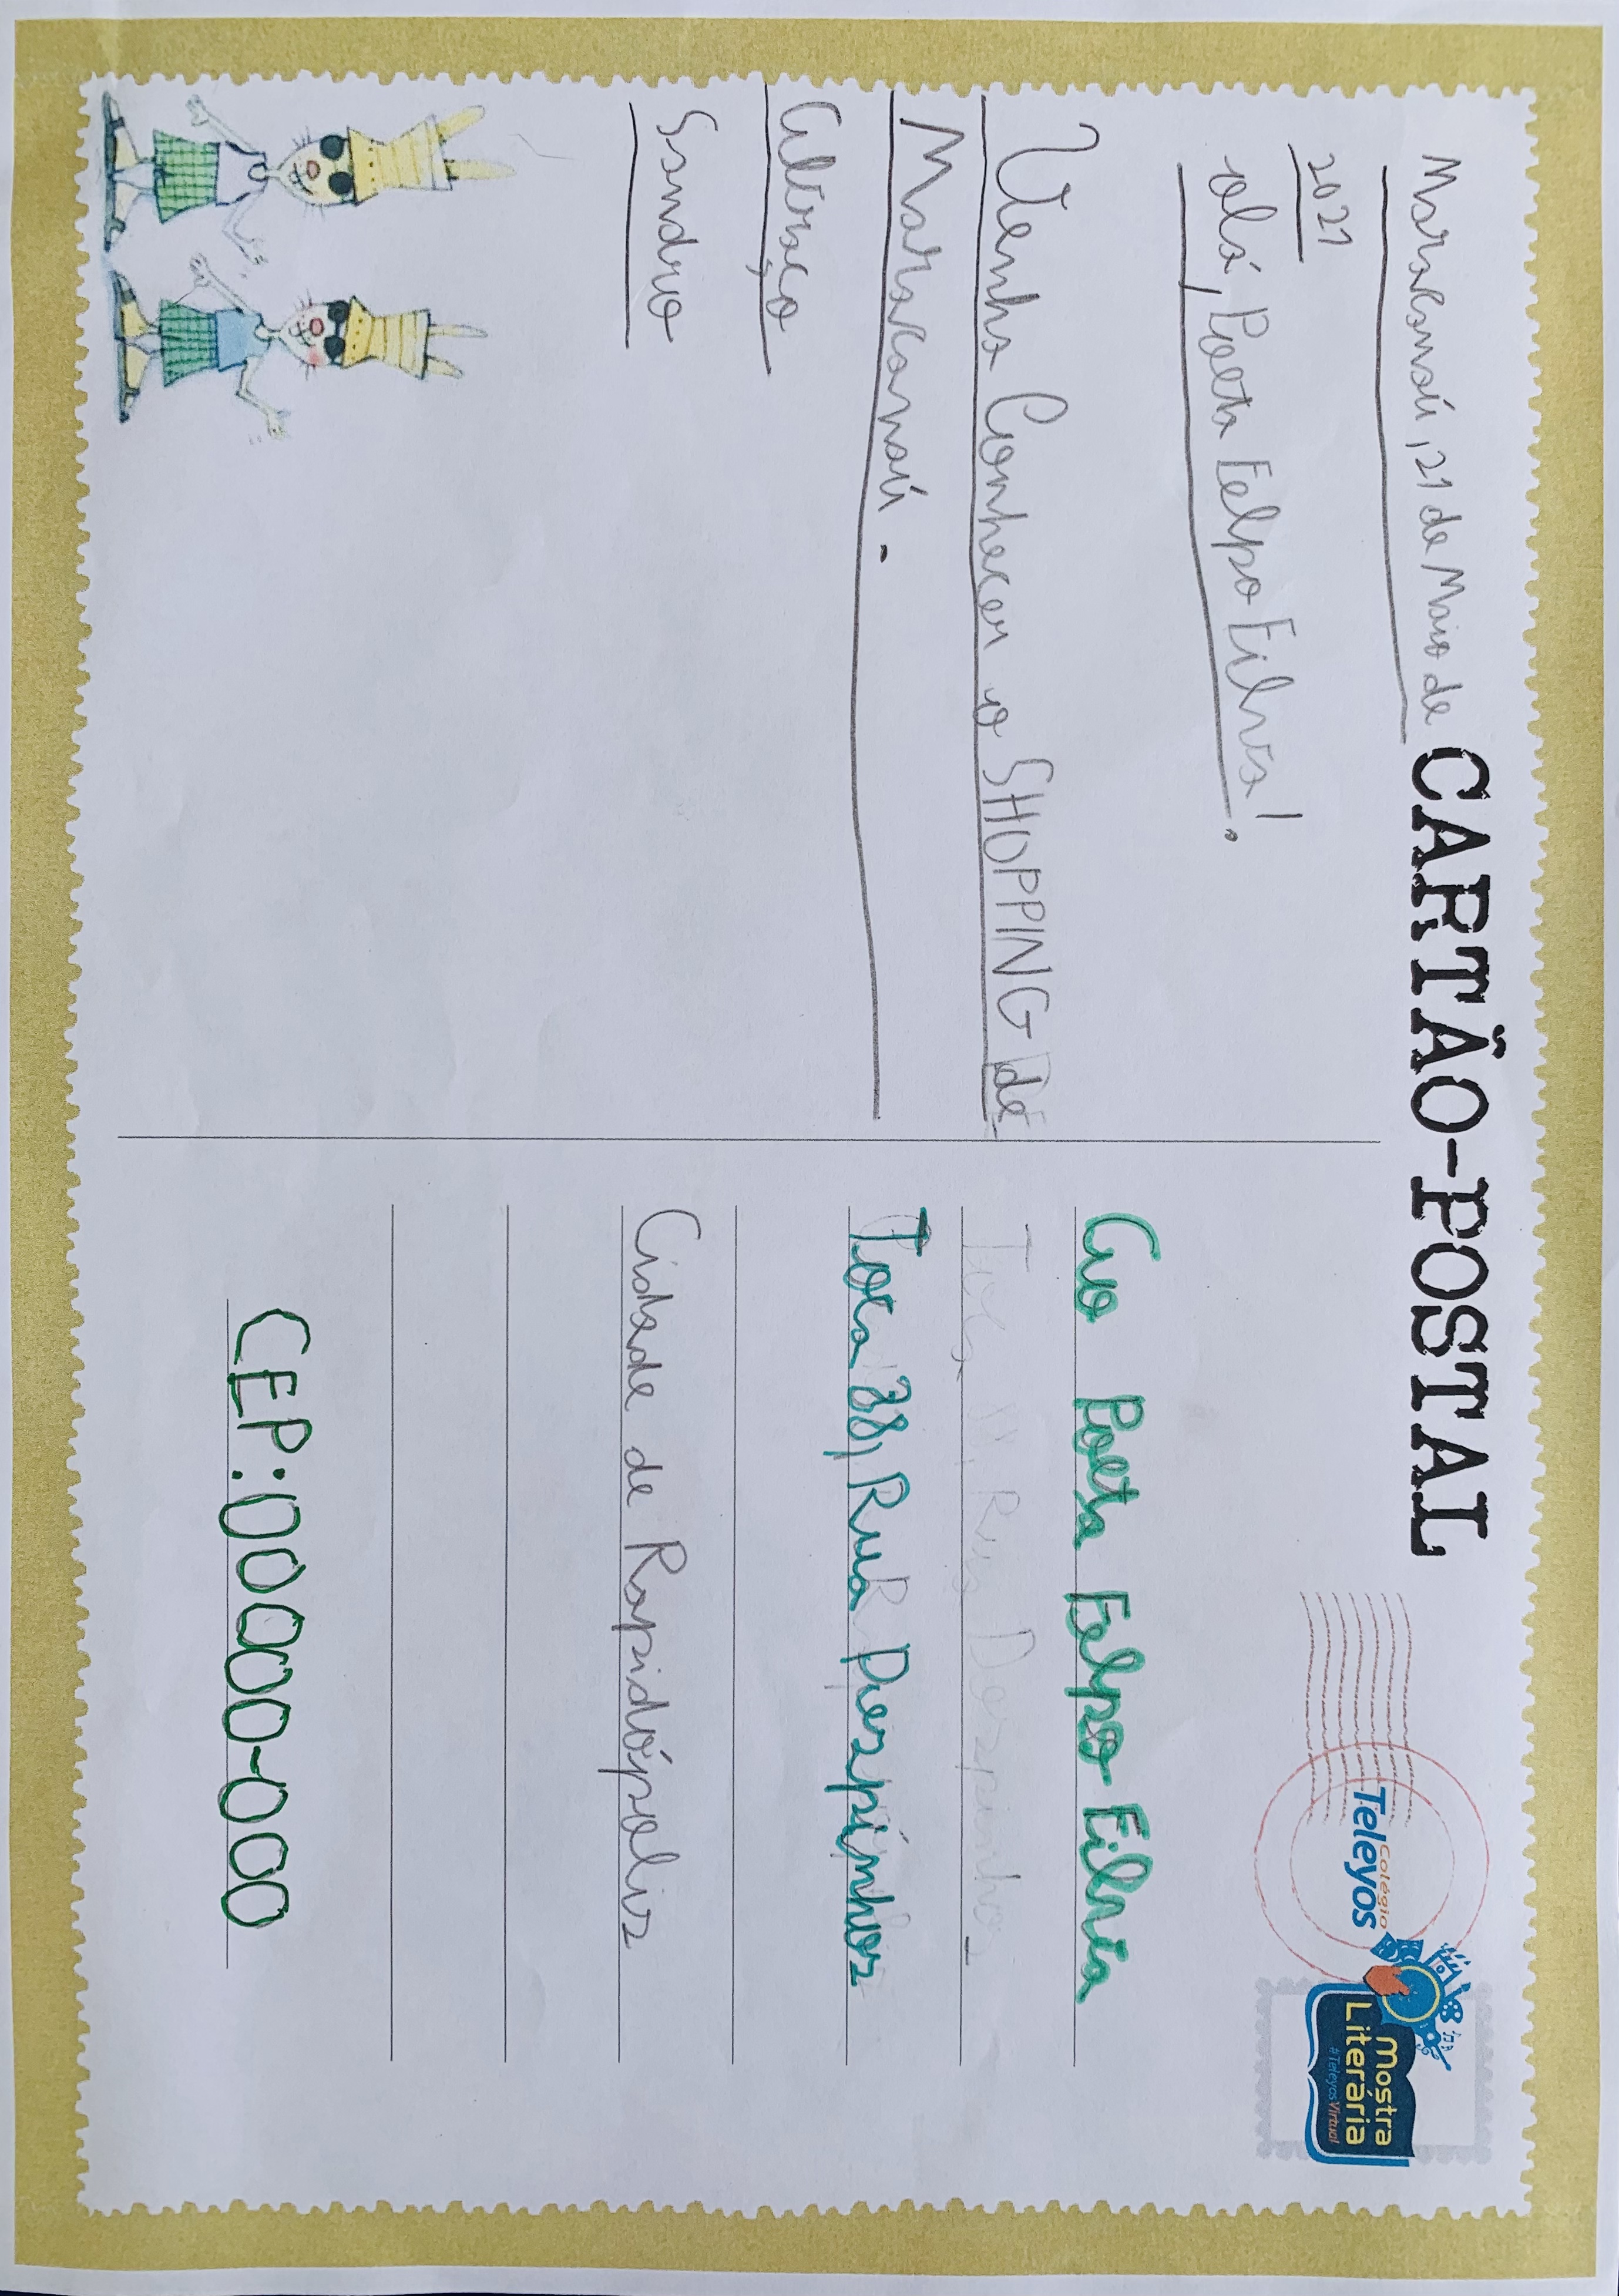 CARTÃO-POSTAL
Maracanaú, 21 de Maio de
2021
olá, Poeta Felpo Filva!
Venha Conhecer o SHOPPING de
Maracanaú.
Abraço
Sandro
Colégio
Teleyos
Mostra
Literária
#TeleyosVirtual
Ao Poeta Felpo Filva
Toca 38, Rua Despinhos
Toca 38, Rua Despinhos
Cidade de Rapidópolis
CEP:00000-000